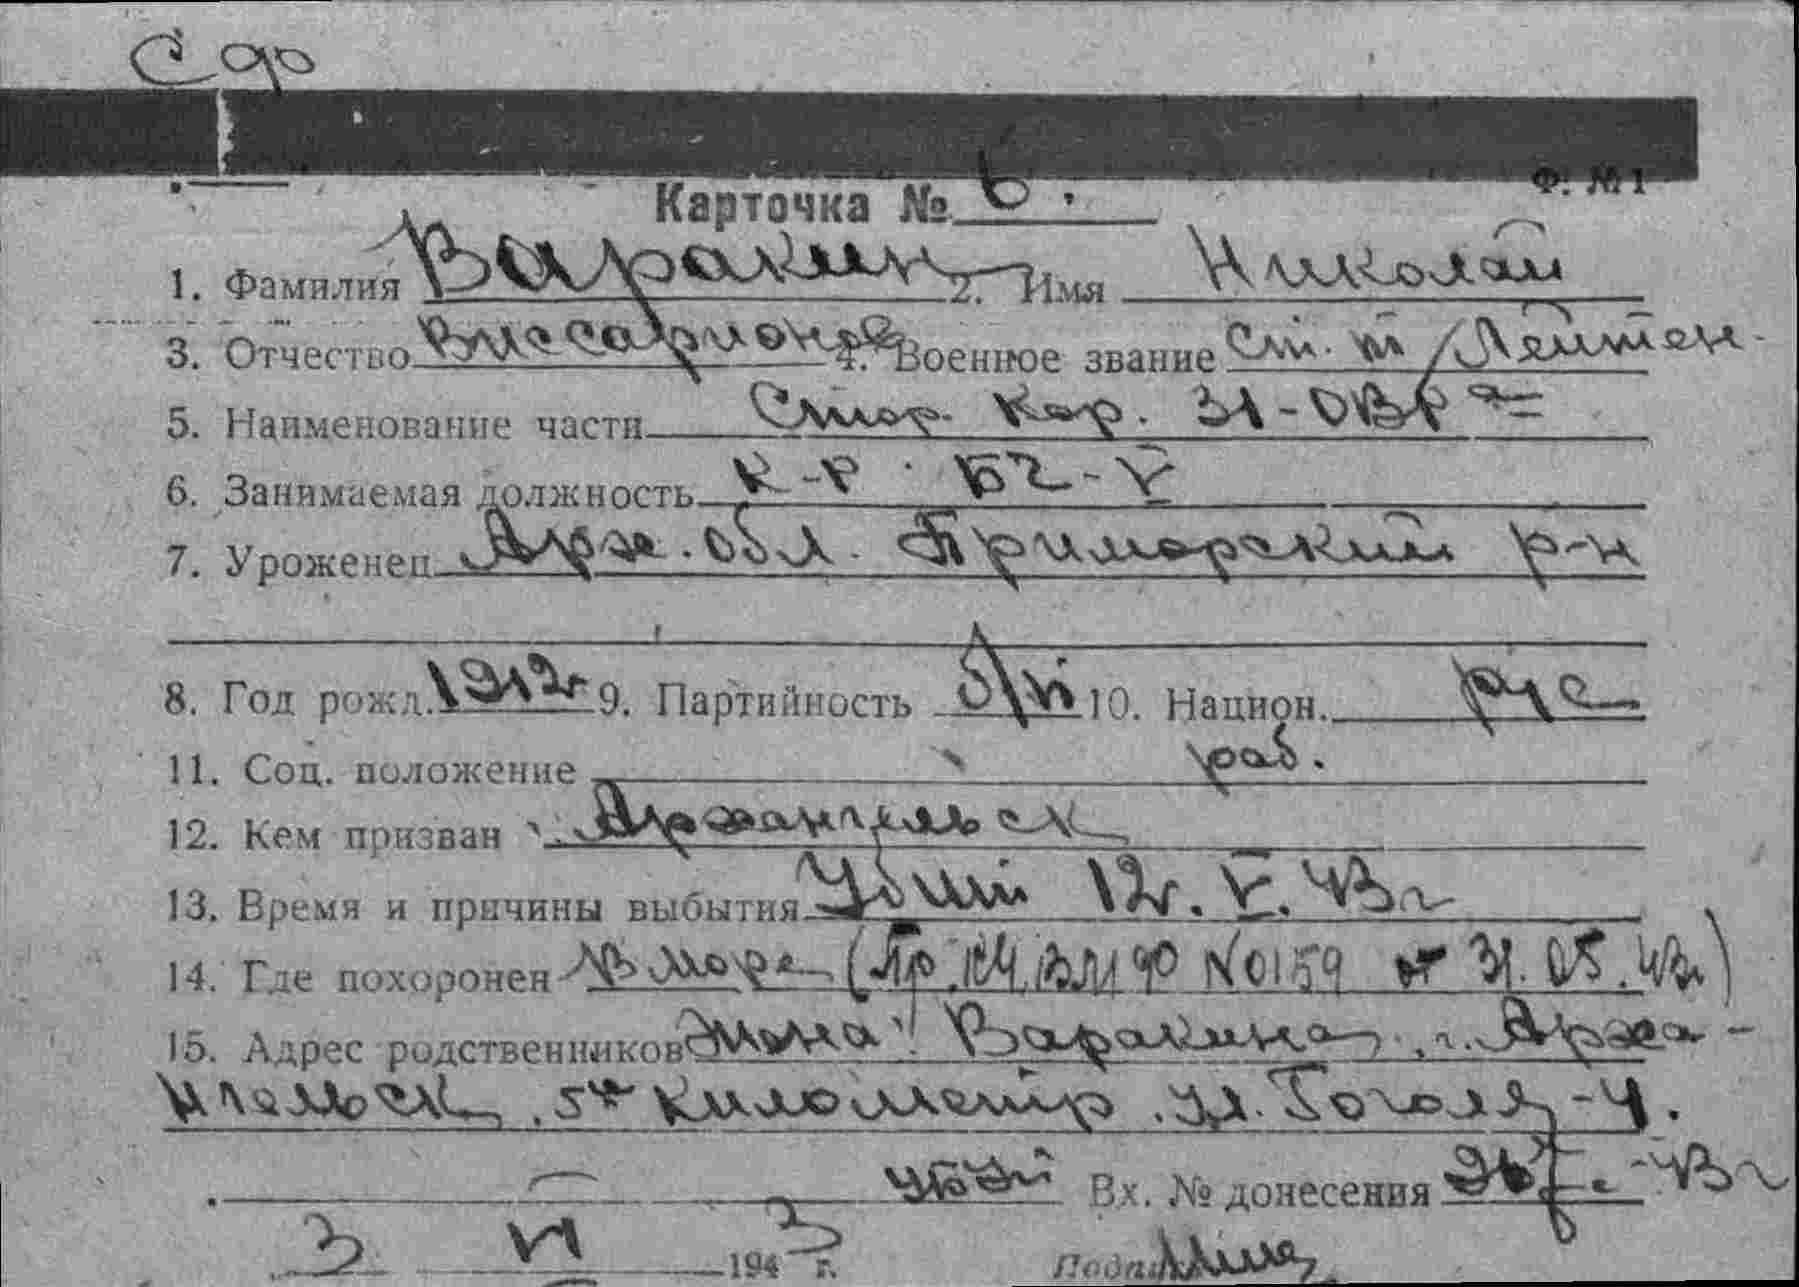 Сф
Ф. № 1
Карточка № 6.
1. Фамилия Варакин 2. Имя Николай
3. Отчество Виссарионов 4. Военное звание Ст. т/Лейтен-
5. Наименование части Стор. Кор. 31-ОВР
6. Занимаемая должность К-р БЧ-V
7. Уроженец Арх. обл. Приморский р-н
8. Год рожд. 1912г 9. Партийность б/п 10. Национ. рус
11. Соц. положение раб.
12. Кем призван Архангельск
13. Время и причины выбытия Убит 12. V. 43г
14. Где похоронен В море (Пр. №0159 от 31.05.43г)
15. Адрес родственников Жена: Варакина, г. Арха-
нгельск, 5й километр, ул. Гоголя-4.
Вх. № донесения 43г
3 VI 1943 г.